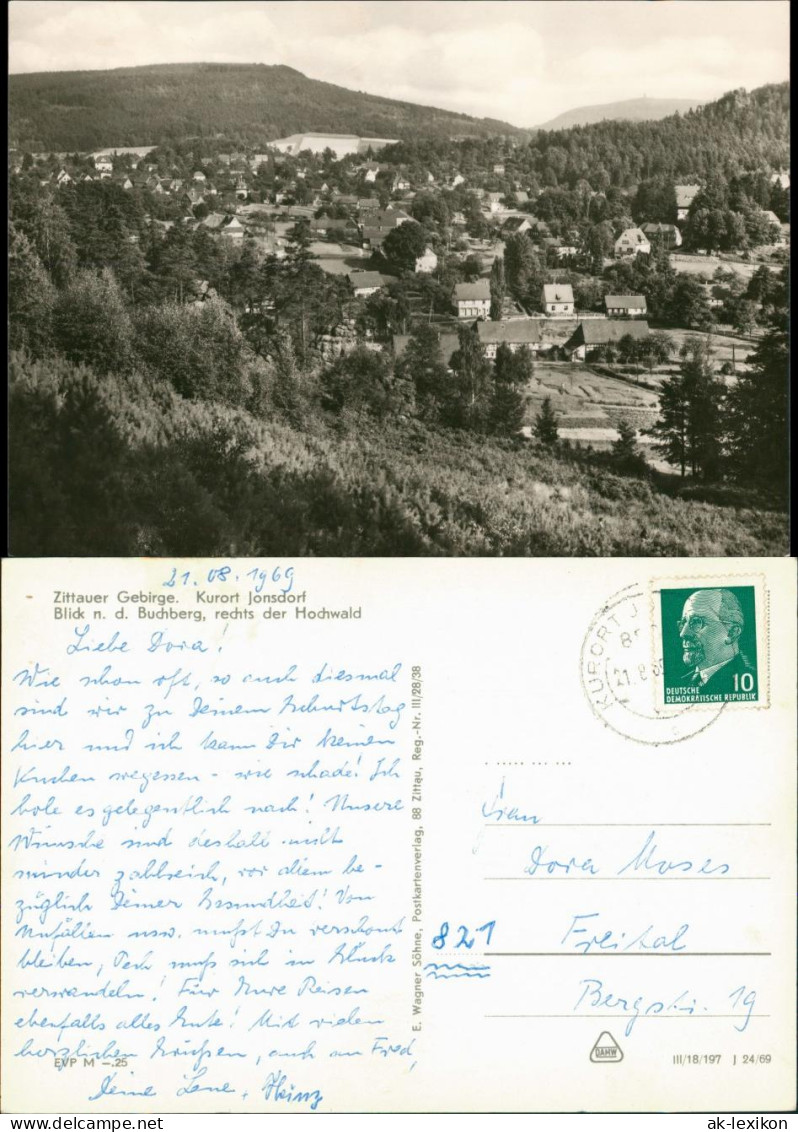 21.08.1969
Zittauer Gebirge. Kurort Jonsdorf
Blick n. d. Buchberg, rechts der Hochwald
Liebe Dora!
Wie schon oft, so auch diesmal
sind wir zu Deinem Geburtstag
hier und ich kann Dir keinen
Kuchen wegessen - wie schade! Ich
hole es gelegentlich nach! Unsere
Wünsche sind deshalb nicht
minder zahlreich, vor allem be-
züglich Deiner Gesundheit! Von
Unfällen usw. mußt Du verschont
bleiben, Pech muß sich in Glück
verwandeln! Für Eure Reisen
ebenfalls alles Gute! Mit vielen
herzlichen Grüßen, auch an Fred,
Deine Lene, Heinz
EVP M -.25
E. Wagner Söhne, Postkartenverlag, 88 Zittau, Reg.-Nr. III/28/38
KURORT J
21.8.69
DEUTSCHE
DEMOKRATISCHE REPUBLIK
10
Frau
Dora Moses
821
Freital
Bergstr. 19
DAMW
III/18/197 J 24/69
ak-lexikon.com